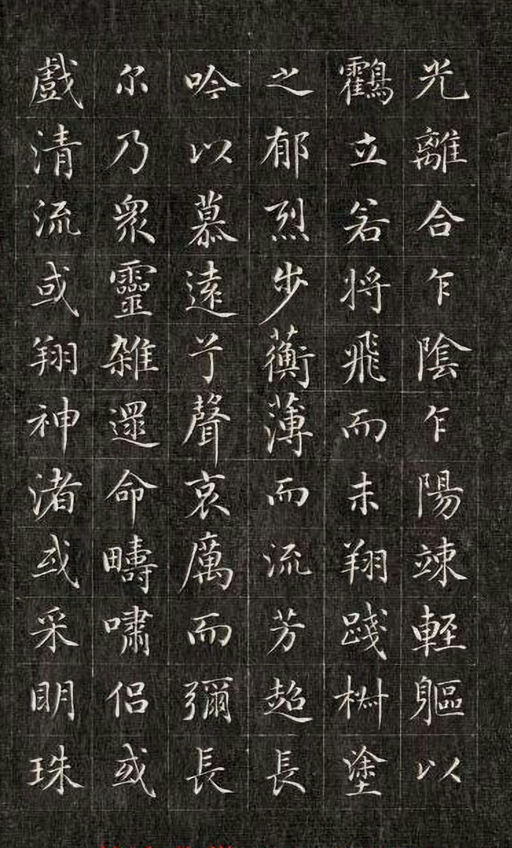 光離合乍陰乍陽竦輕軀以
鸖立若将飛而未翔踐椒塗
之郁烈步蘅薄而流芳超長
吟以慕遠兮聲哀厲而彌長
尔乃眾靈雑遝命疇嘯侣或
戲清流或翔神渚或采明珠